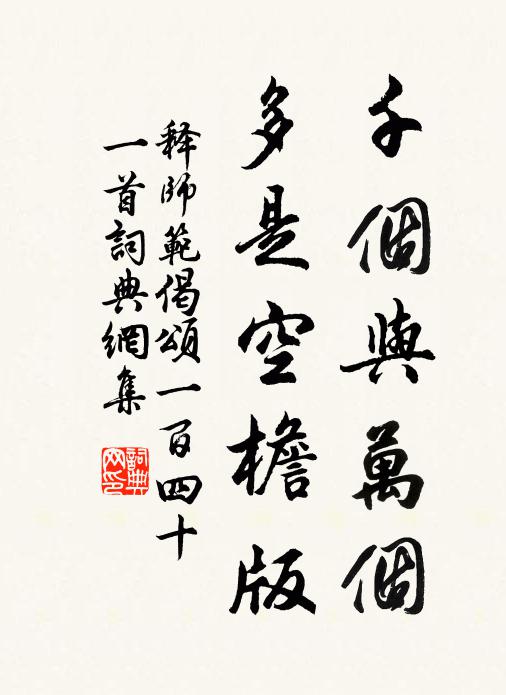 千個與萬個
多是空檐版
释師範偈頌一百四十
一首詞典網集
詞典网印